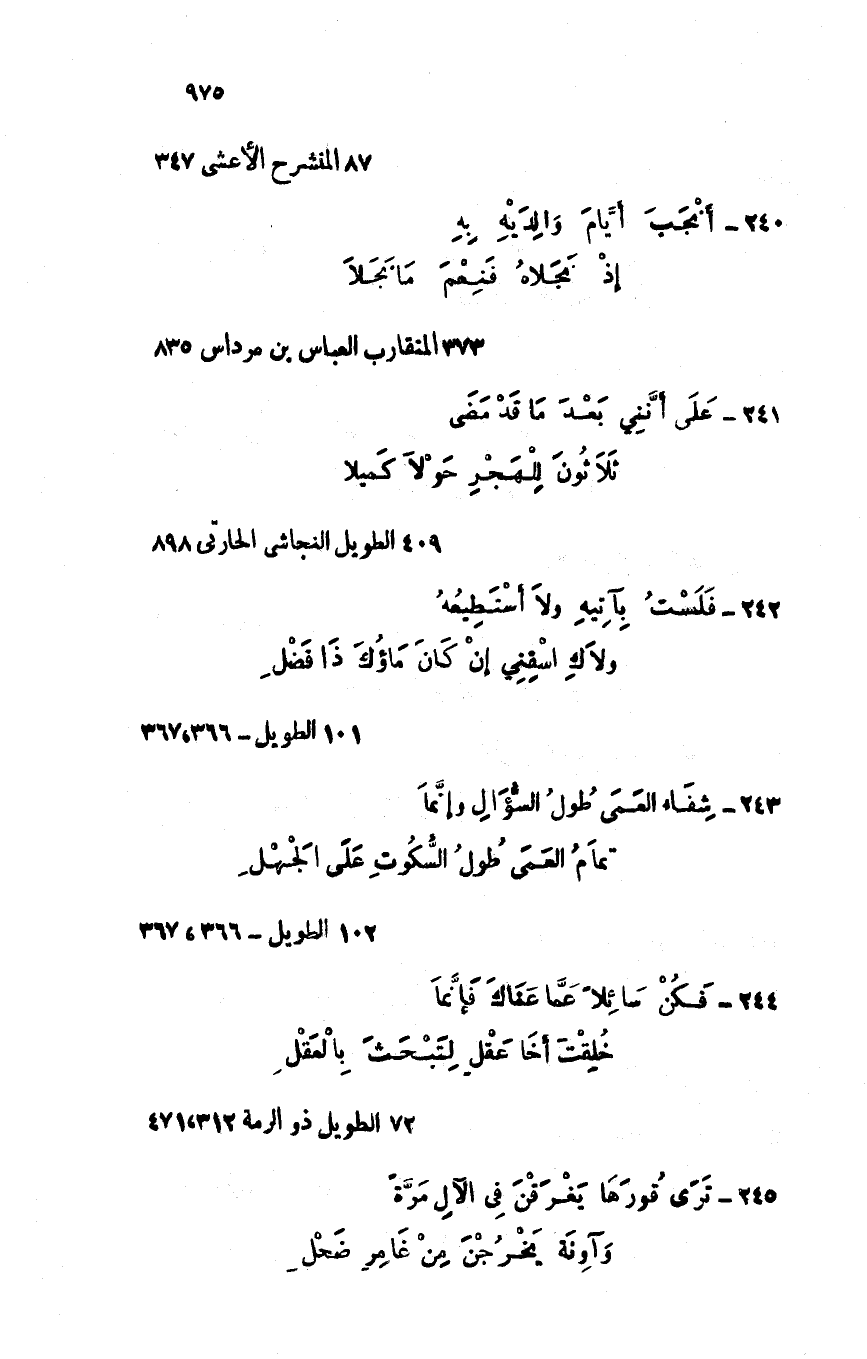 ٩٧٥
٨٧ المنشرح الأعشى ٣٤٧
٢٤٠ ـ أَنْجَبَ أَيَّامَ وَالِدَيْهِ بِهِ
إِذْ نَجَلاهُ فَنِعْمَ مَا نَجَلاَ
٣٧٣ المتقارب العباس بن مرداس ٨٣٥
٢٤١ ـ عَلَى أَنَّنِي بَعْدَ مَا قَدْ مَضَى
ثَلاَثُونَ لِلْهَجْرِ حَوْلاً كَميلا
٤٠٩ الطويل النجاشى الحارثى ٨٩٨
٢٤٢ ـ فَلَسْتُ بِآتِيهِ ولاَ أَسْتَطِيعُهُ
ولاَكِ اسْقِنِي إنْ كَانَ مَاؤُكَ ذَا فَضْلِ
١٠١ الطويل ـ ٣٦٦،٣٦٧
٢٤٣ ـ شِفَاء العَمَى طُولُ السُّؤَالِ وإنَّمَا
تمامُ العَمَى طُولُ السُّكُوتِ عَلَى الجَهْلِ
١٠٢ الطويل ـ ٣٦٦ ، ٣٦٧
٢٤٤ ـ فَكُنْ سَائِلاً عَمَّا عَنَاكَ فَإِنَّمَا
خُلِقْتَ أَخَا عَقْلٍ لِتَبْحَثَ بِالْعَقْلِ
٧٢ الطويل ذو الرمة ٣١٢،٤٧١
٢٤٥ ـ تَرَى قُورَهَا يَغْرَقْنَ فِى الآلِ مَرَّةً
وَآوِنَة يَخْرُجْنَ مِنْ غَامِرٍ ضَحْلِ